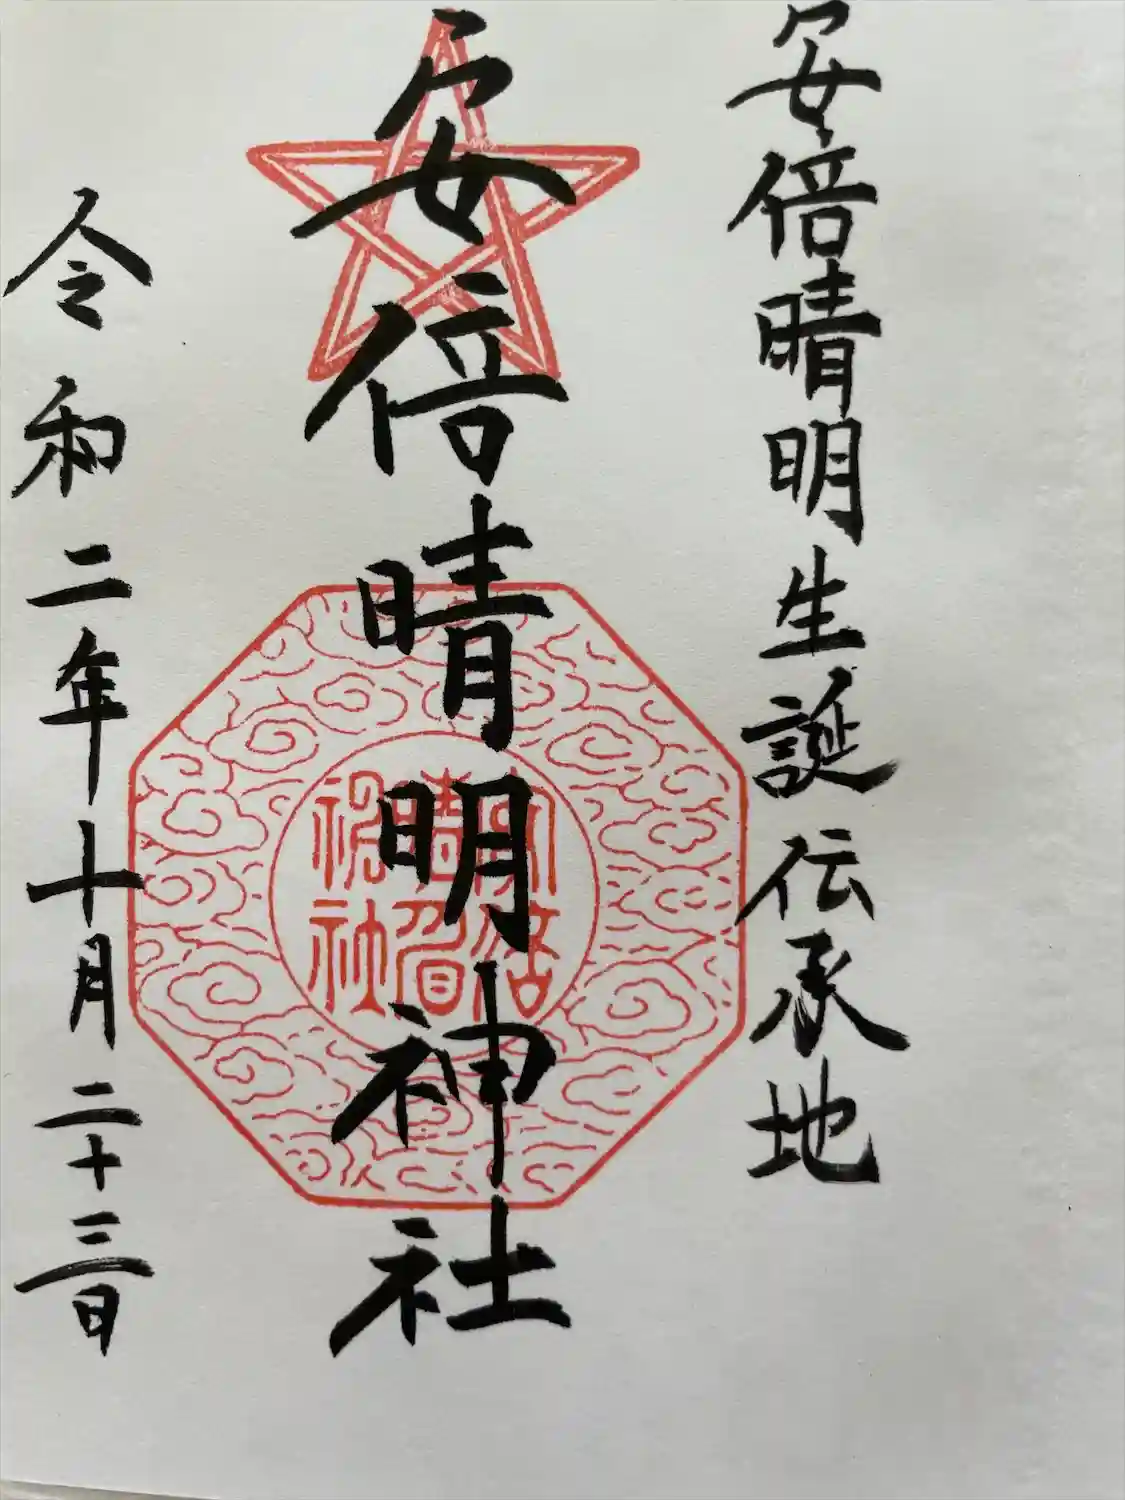 安倍晴明生誕伝承地
安倍晴明神社
安倍
晴明
神社
令和二年十月二十三日